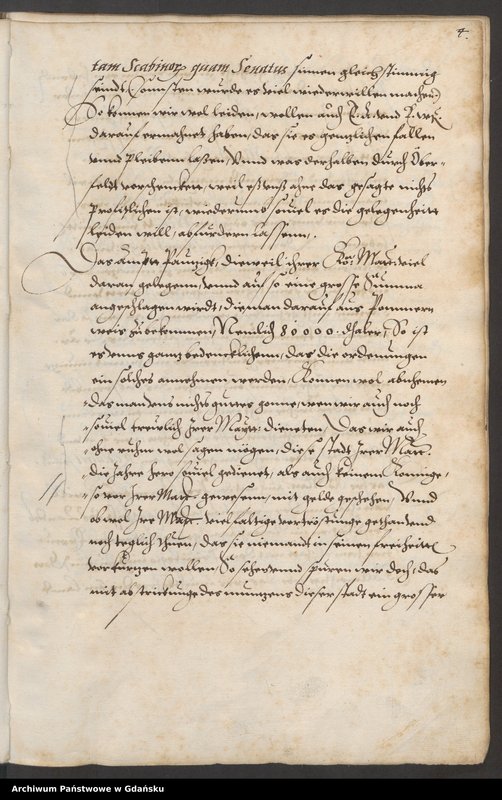 4.
tam Scabinor quam Senatus sinnen gleichstimmig
seindt (Sounsten wurde es viel wiederwillen machen)
So können wir wol leiden, wollen auch E. E. und
darauf ermahnet haben, das sie es gentzlichen fallen
unnd pleibenn laßen, Unnd was derhalben durch Über-
feldt vorschencken, weil es uns ahne das gesagte nichts
profitzlichen ist, wiederumb souiel es die gelegenheitt
leiden will abfurdern lassenn.
Das ampt Pauzigk, dieweil ihrer Kön: Matt: viel
daran gelegenn, unnd auf so eine grosse Summa
angeschlagen wirdt, die man darauf aus Pommern
weis zubekommen, Nemlich 80000. thaler, So ist
es unns gantz bedencklichenn, das die ordenungen
ein solches annehmen werden, Können wol abnehmen
das man uns nichts gutes gonne, wen wir auch noch
souiel treulich Irer Matt: dieneten, Das wir auch
ohne ruhm wol sagen mögen, diese stadt Irer Matt:
die Jahre hero souiel gedienet, als auch keinem Koninge,
so vor Irer Matt: gewesenn, mit gelde geschehen, Unnd
ob wol Ire Matt: vielfaltige vertröstunge gethan unnd
noch teglich thuen, das sie niemandt in seinen freiheitt
vorkurtzen wollen, So sehen unnd spüren wir doch, das
mit abstrickunge des muntzens dieser stadt ein grosser
Archiwum Państwowe w Gdańsku